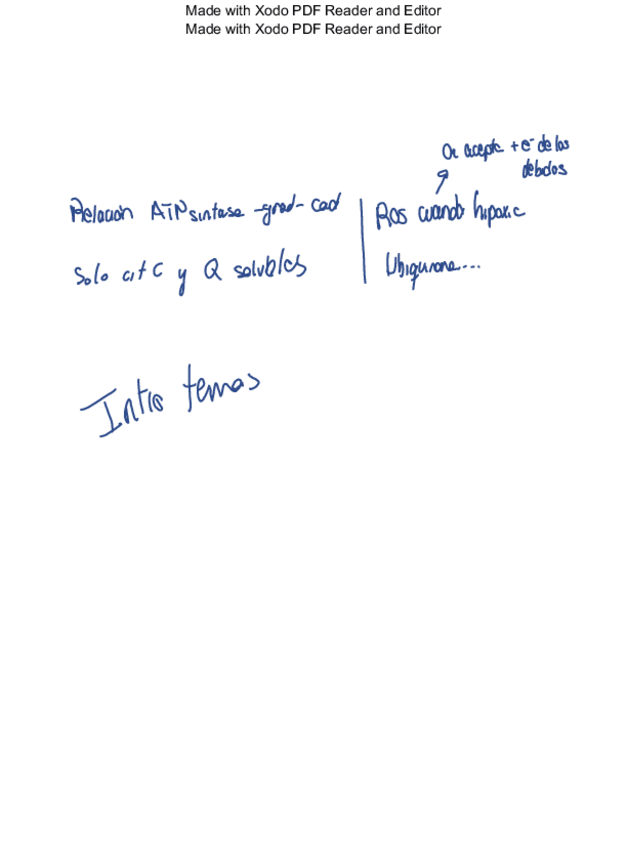 Made with Xodo PDF Reader and Editor
Made with Xodo PDF Reader and Editor
O₂ acepte + e⁻ de los
debidos
Relación ATPsintasa -grad- cad
Ros cuando hipoxic
Solo cit C y Q solubles
Ubiquinona...
Intro temas